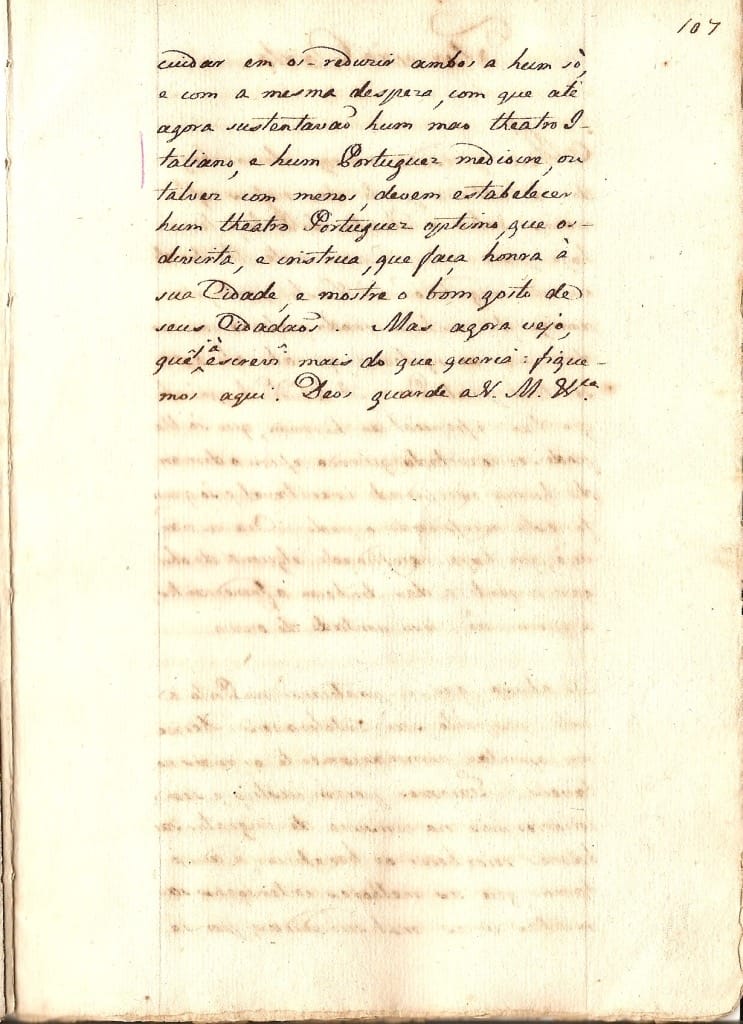 107
cuidar em os-reduzir ambos a hum sò,
e com a mesma despeza, com que atè
agora sustentavaõ hum mao theatro I-
taliano, e hum Portuguez mediocre, ou
talvez com menos, devem estabelecer
hum theatro Portuguez optimo, que os-
divirta, e instrua, que faça honra à
sua Cidade, e mostre o bom gosto de
seus Cidadaõs. Mas agora vejo,
que jà escrevi mais do que queria: fique-
mos aqui. Deos guarde a V. M.